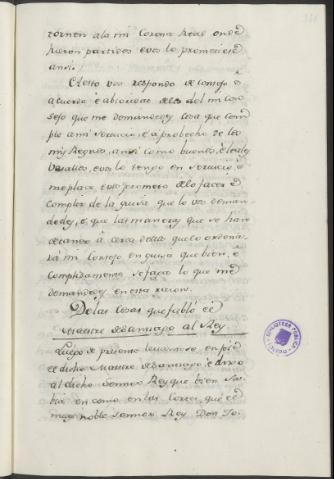 tornen ala mi Corona Real onde
fueron partidos evos lo prometiese
ansi.
Aesto vos respondo de consejo e
acuerdo é abtoridad delos del mi Con
sejo que me demandades cosa que cum
ple ami Servicio, é a probecho de los
mys Regnos, ansi como buenos é leales
Vasallos, evos lo tengo en servicio, é
meplace, evos prometo delo facer é
complir de la guisa que lo vos deman
dedes, é que las maneras que se han
detener á cerca desto que lo ordena
rá mi Consejo en guisa que bien, é
complidamente se faga lo que me
demandades en esta razon.
Delas cosas que fabló el
Maestre de Santiago al Rey
Luego de presente levantose en pie
el dicho Maestre de Santiago é dixo
al dicho Sennor Rey que bien sa-
bia en como en las Cortes, que el
muy noble Sennor Rey Don Jo-
BIBLIOTECA PUBLICA